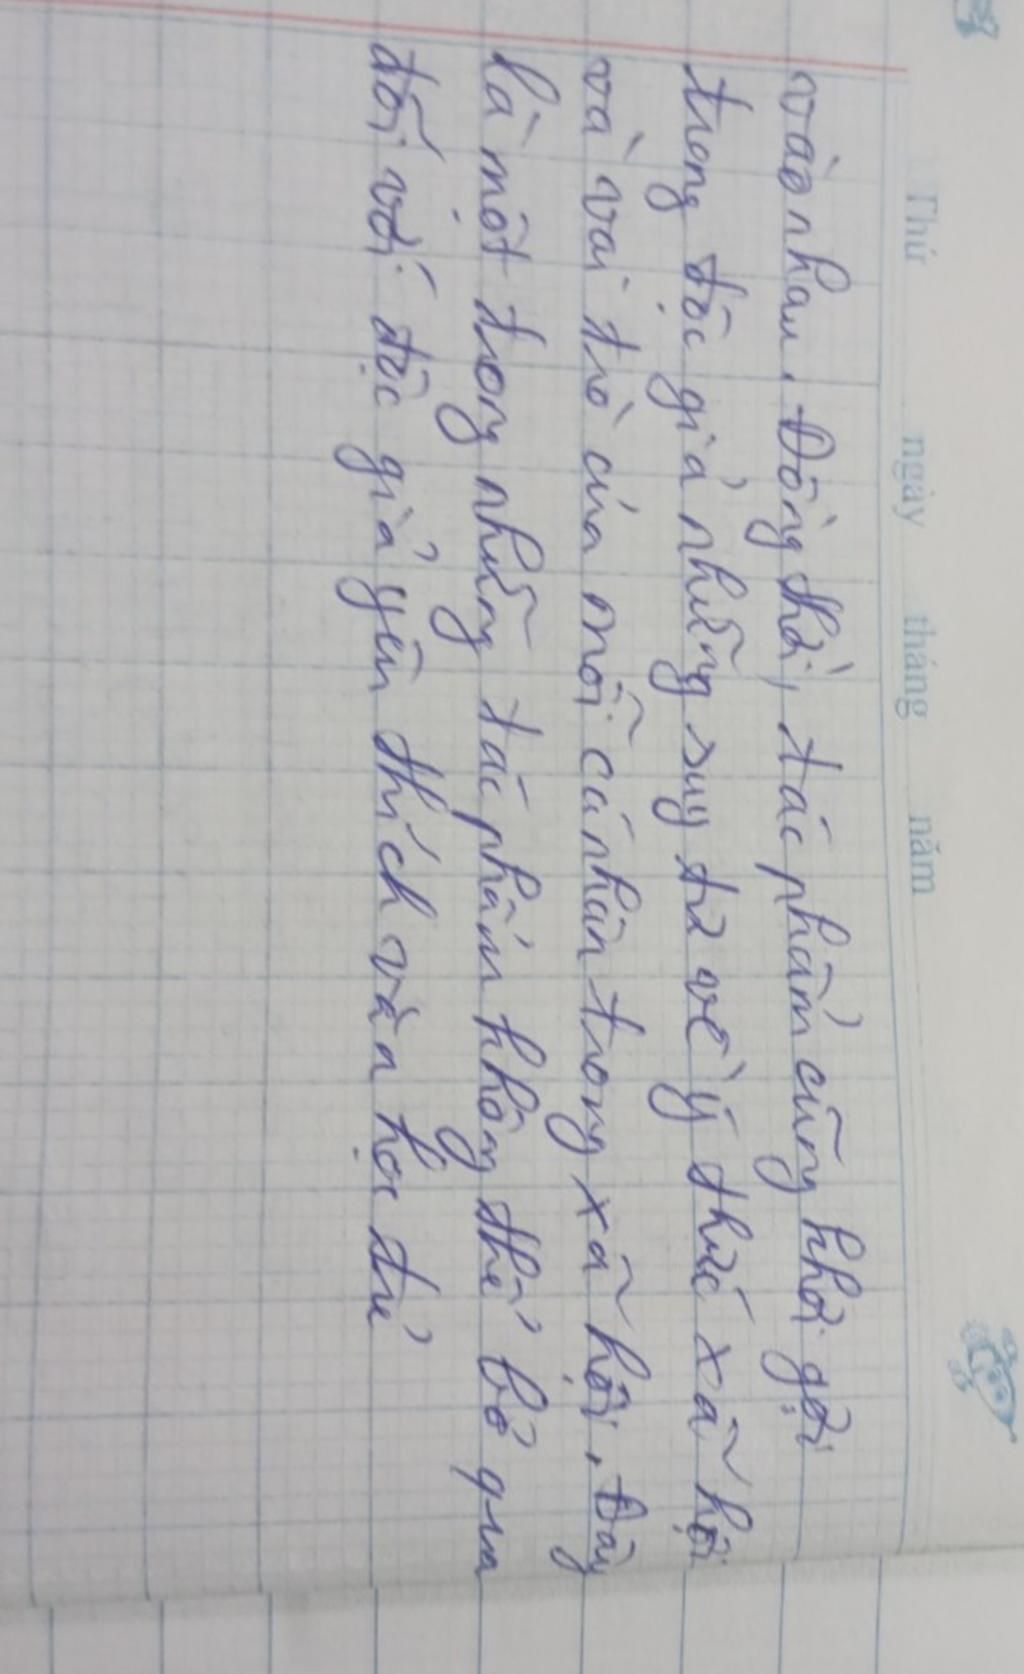 Thứ ngày tháng năm
vào nhau. Đồng thời, tác phẩm cũng khơi gợi
trong độc giả những suy tư về ý thức xã hội
và vai trò của mỗi cá nhân trong xã hội. Đây
là một trong những tác phẩm không thể bỏ qua
đối với độc giả yêu thích văn học trữ